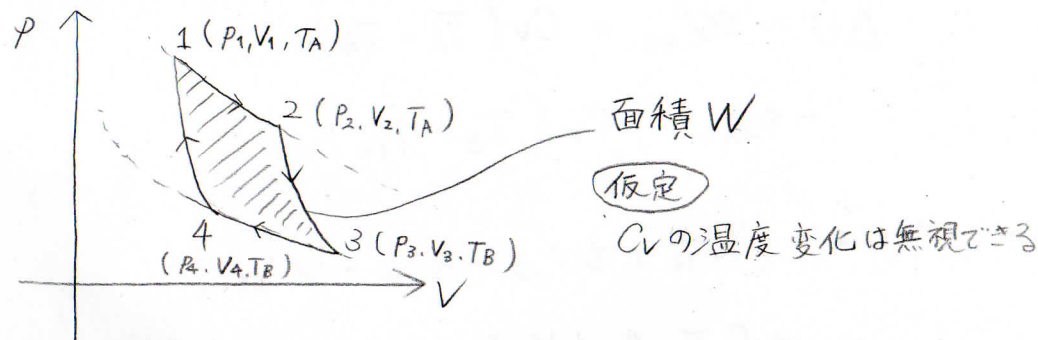 P
1 (P1, V1, TA)
2 (P2, V2, TA)
面積 W
仮定
CVの温度変化は無視できる
4
(P4, V4, TB)
3 (P3, V3, TB)
V